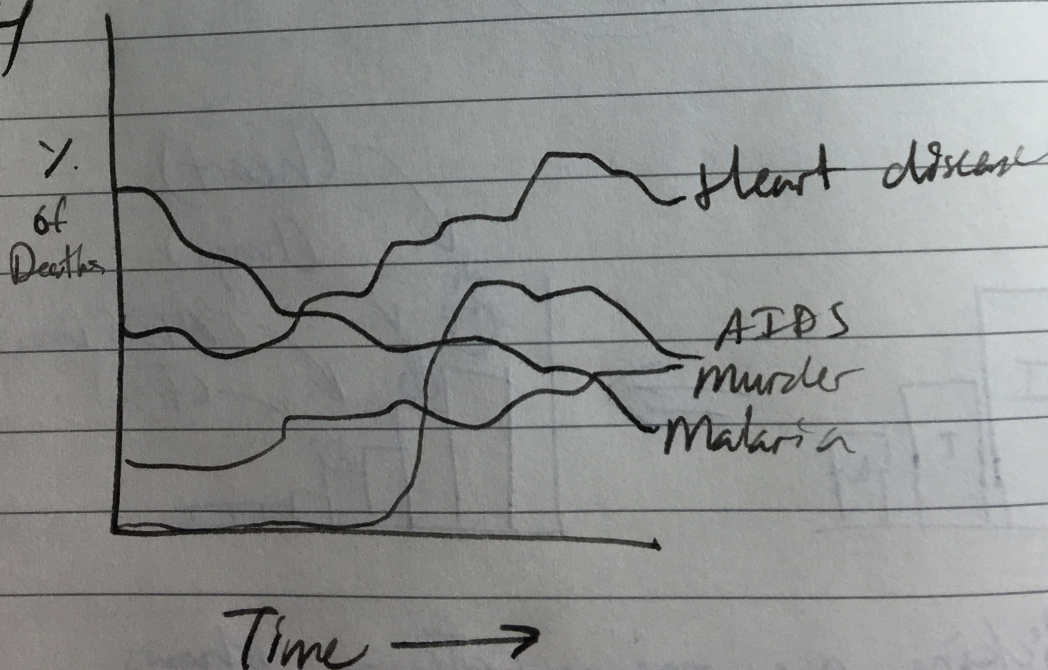 %
of
Deaths
Heart disease
AIDS
Murder
Malaria
Time